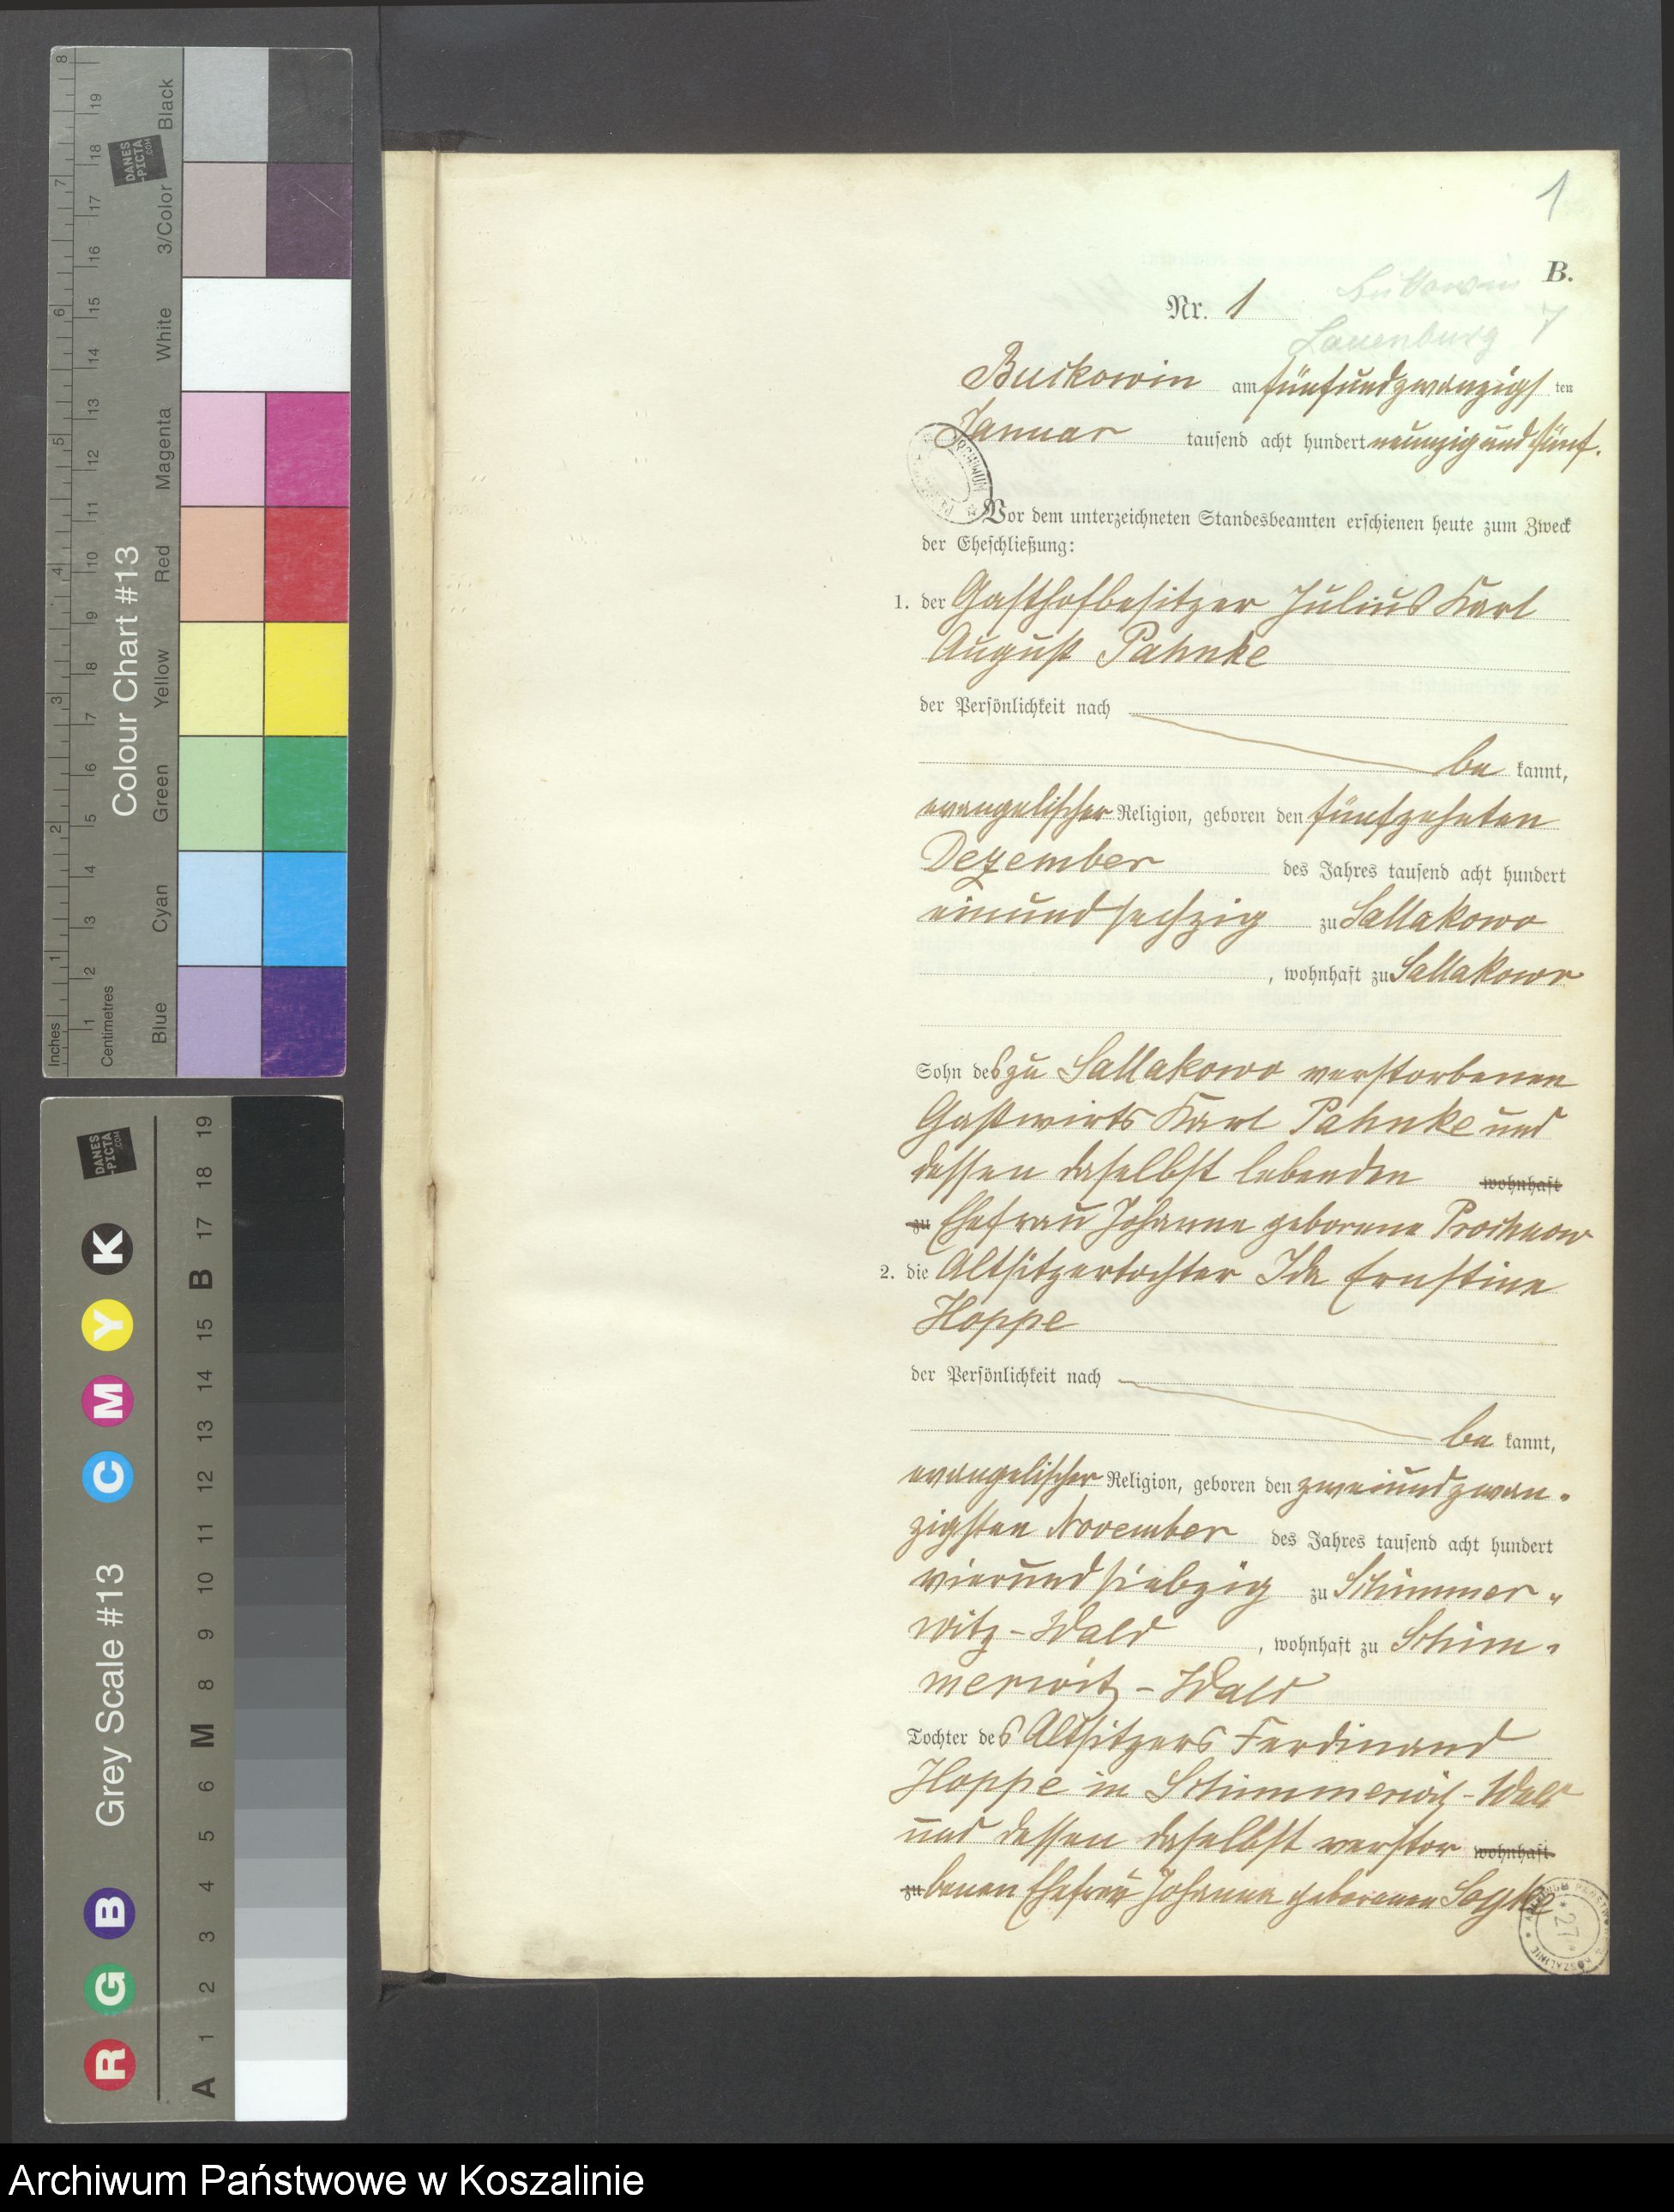 1
B.
Nr. 1
Lauenburg 7
Buckowin am fünfundzwanzigs ten
Januar tausend acht hundert neunzig und fünf.
Vor dem unterzeichneten Standesbeamten erschienen heute zum Zweck
der Eheschließung:
1. der Gasthofbesitzer Julius Karl
August Pahnke
der Persönlichkeit nach
be kannt,
evangelischer Religion, geboren den fünfzehnten
Dezember des Jahres tausend acht hundert
einundsechzig zu Sallakowo
, wohnhaft zu Sallakowo
Sohn des zu Sallakowo verstorbenen
Gastwirts Karl Pahnke und
dessen daselbst lebenden wohnhaft
zu Ehefrau Johanna geborene Prochnow
2. die Altsitzertochter Ida Ernstine
Hoppe
der Persönlichkeit nach
be kannt,
evangelischer Religion, geboren den zweiundzwan-
zigsten November des Jahres tausend acht hundert
vierundsiebzig zu Schimmer-
witz-Wald , wohnhaft zu Schim-
merwitz-Wald
Tochter des Altsitzers Ferdinand
Hoppe in Schimmerwitz-Wald
und dessen daselbst verstor wohnhaft
zu benen Ehefrau Johanna geborenen
27
Colour Chart #13
Blue Cyan Green Yellow Red Magenta White 3/Color Black
Inches 1 2 3 4 5 6 7 8
Centimetres 1 2 3 4 5 6 7 8 9 10 11 12 13 14 15 16 17 18 19
DANES
-PICTA
.COM
Grey Scale #13
R G B C M Y K
A 1 2 3 4 5 6 M 8 9 10 11 12 13 14 15 B 17 18 19
DANES
-PICTA
.COM
Archiwum Państwowe w Koszalinie